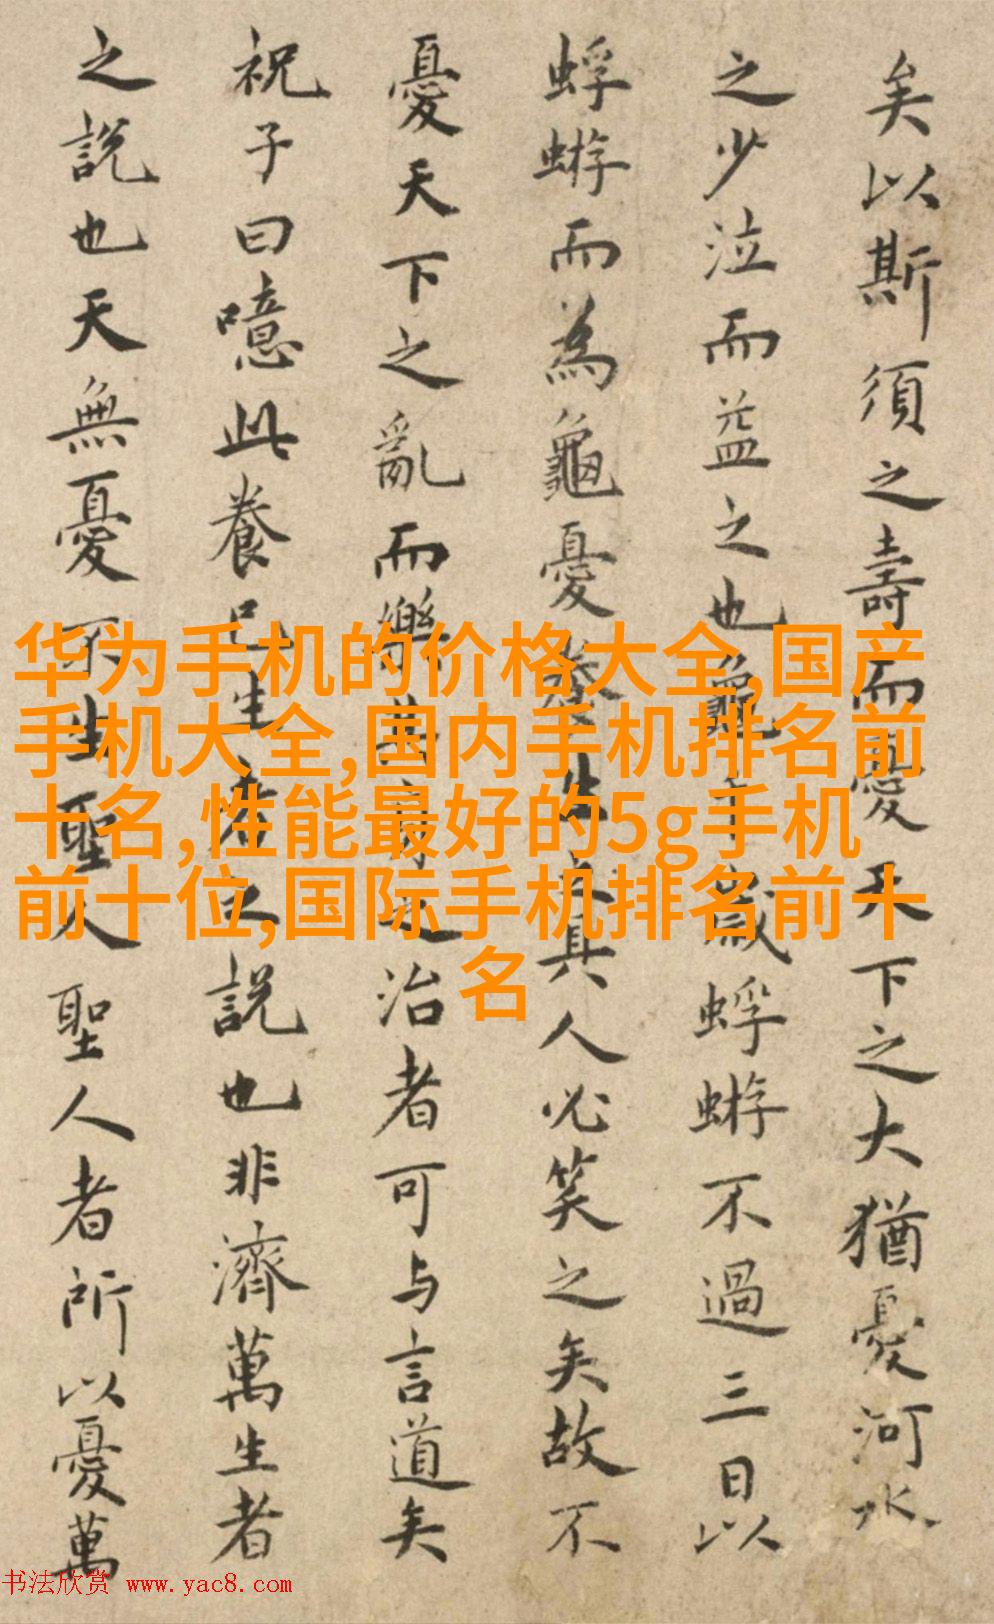 矣以斯須之壽而憂天下之大猶憂河水
之少泣而益之也龜千歲蜉蝣不過三日以
蜉蝣而為龜憂養生之具人必笑之矣故不
憂天下之亂而樂其身之治者可与言道矣
祝子曰噫此養己生產之說也非濟萬生者
之說也天無憂不生聖人聖人者所以憂萬
华为手机的价格大全,国产
手机大全,国内手机排名前
十名,性能最好的5g手机
前十位,国际手机排名前十
名
书法欣赏 www.yac8.com